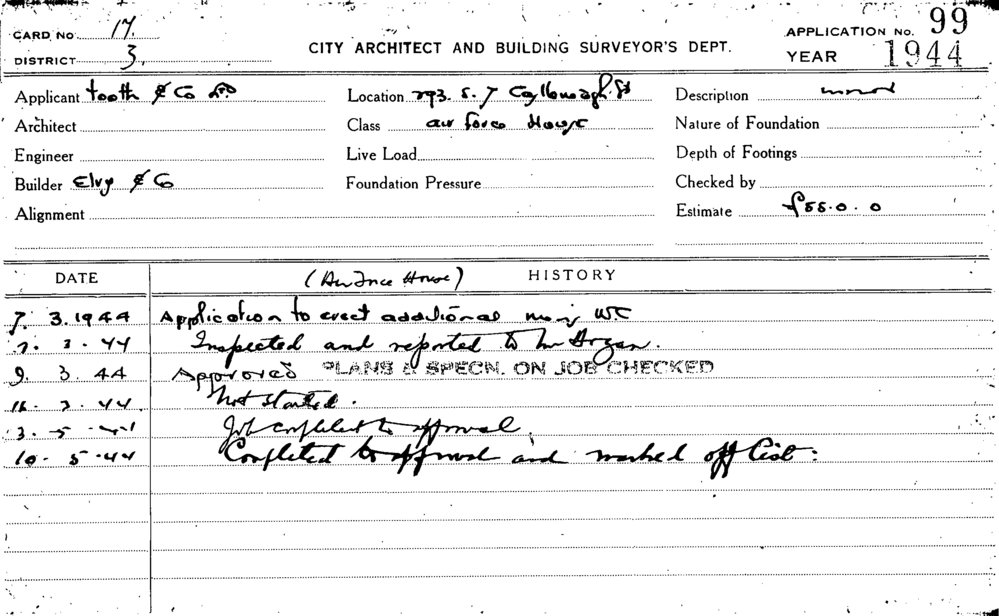 CARD No 17. APPLICATION No. 99
DISTRICT 3. CITY ARCHITECT AND BUILDING SURVEYOR'S DEPT. YEAR 1944
Applicant tooth & Co Location 293. 5. 7 St Description minor
Architect Class air force House Nature of Foundation
Engineer Live Load Depth of Footings
Builder Elvy & Co Foundation Pressure Checked by
Alignment Estimate £55.0.0
DATE (Air Force House) HISTORY
7. 3.1944 Application to erect additional WC
7. 3. 44 Inspected and reported to Mr Hogan.
9. 3. 44 Approved PLANS & SPECN. ON JOB CHECKED
16. 3. 44. Not started.
3. 5. 44 Job complete to approval.
10. 5. 44 Completed to approval and marked off list: